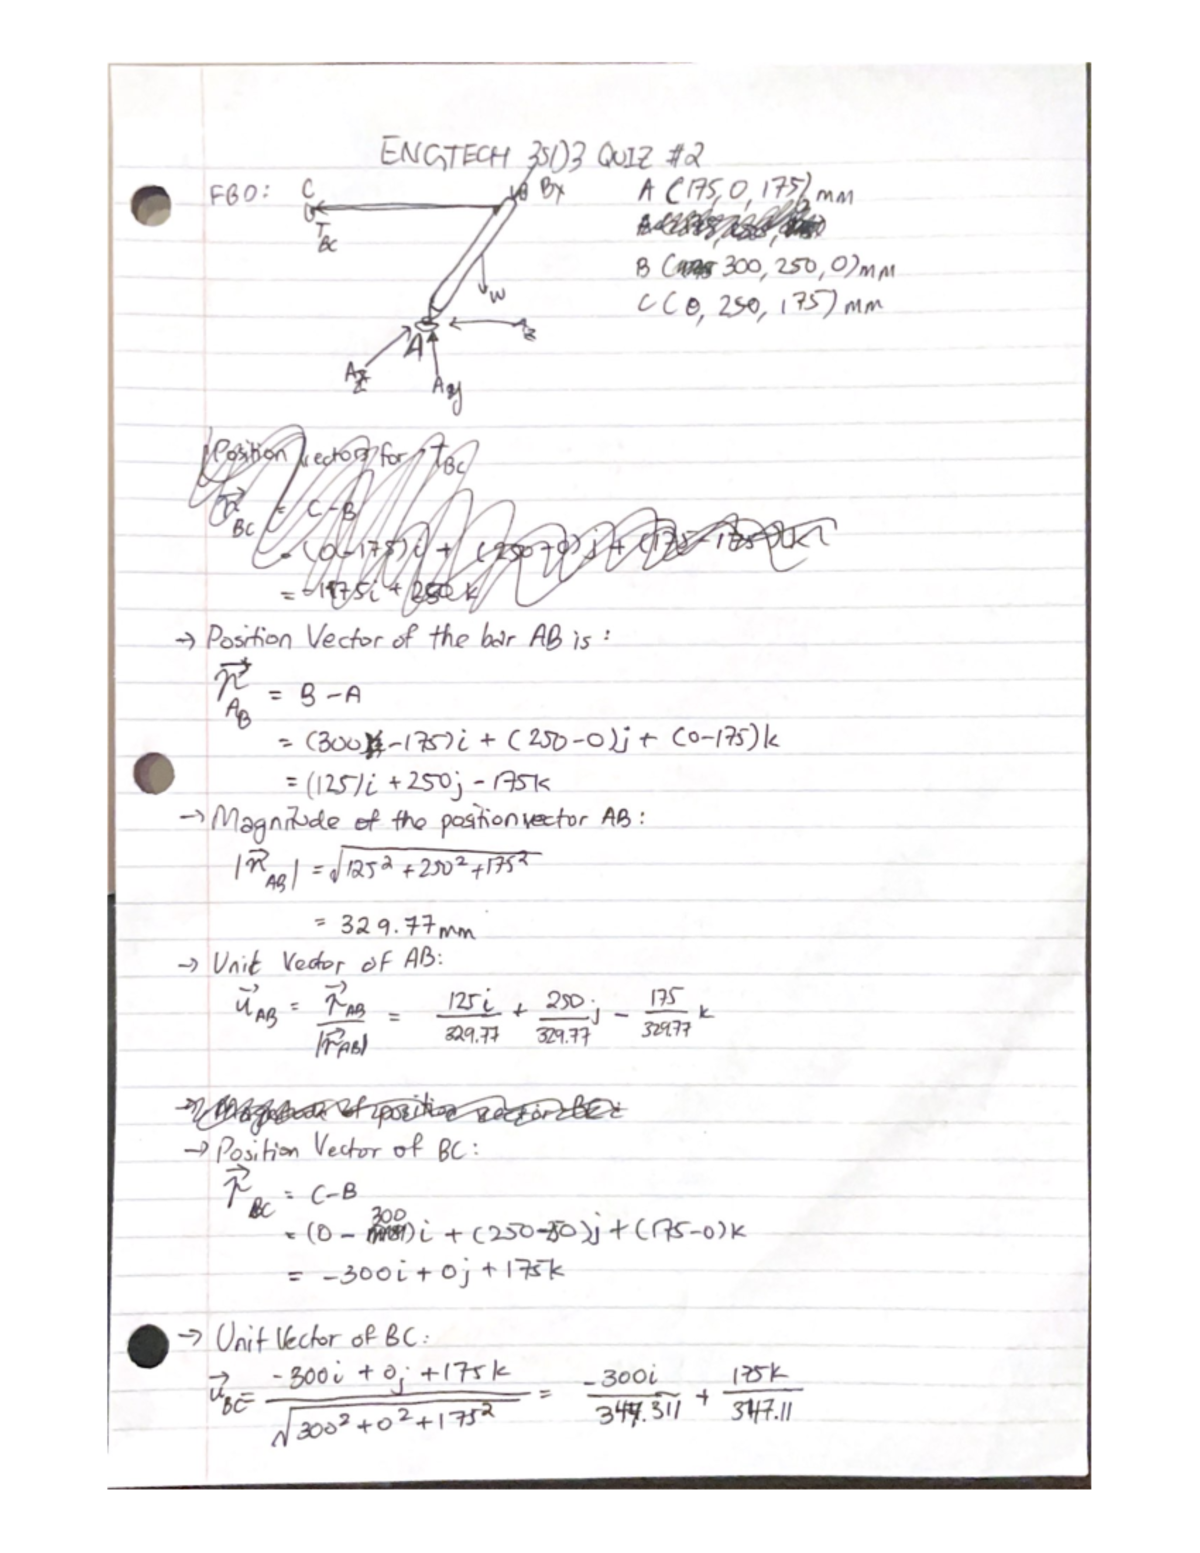 ENGTECH 3SD3 QUIZ #2
FBD:
C
Bx
T BC
W
A
Az
Ay
A (175, 0, 175) mm
B (300, 250, 0) mm
C (0, 250, 175) mm
Position vector for T BC
r BC = C - B
= (0-175)i + (250-0)j + (175-175)k
= -175i + 250k
→ Position Vector of the bar AB is :
r AB = B - A
= (300-175)i + (250-0)j + (0-175)k
= (125)i + 250j - 175k
→ Magnitude of the position vector AB :
|r AB| = √125² + 250² + 175²
= 329.77 mm
→ Unit Vector of AB:
u AB = r AB / |r AB| = 125i / 329.77 + 250 / 329.77 j - 175 / 329.77 k
→ Position Vector of BC:
r BC = C - B
= (0 - 300)i + (250-250)j + (175-0)k
= -300i + 0j + 175k
→ Unit Vector of BC:
u BC = -300i + 0j + 175k / √300² + 0² + 175² = -300i / 347.311 + 175k / 347.11